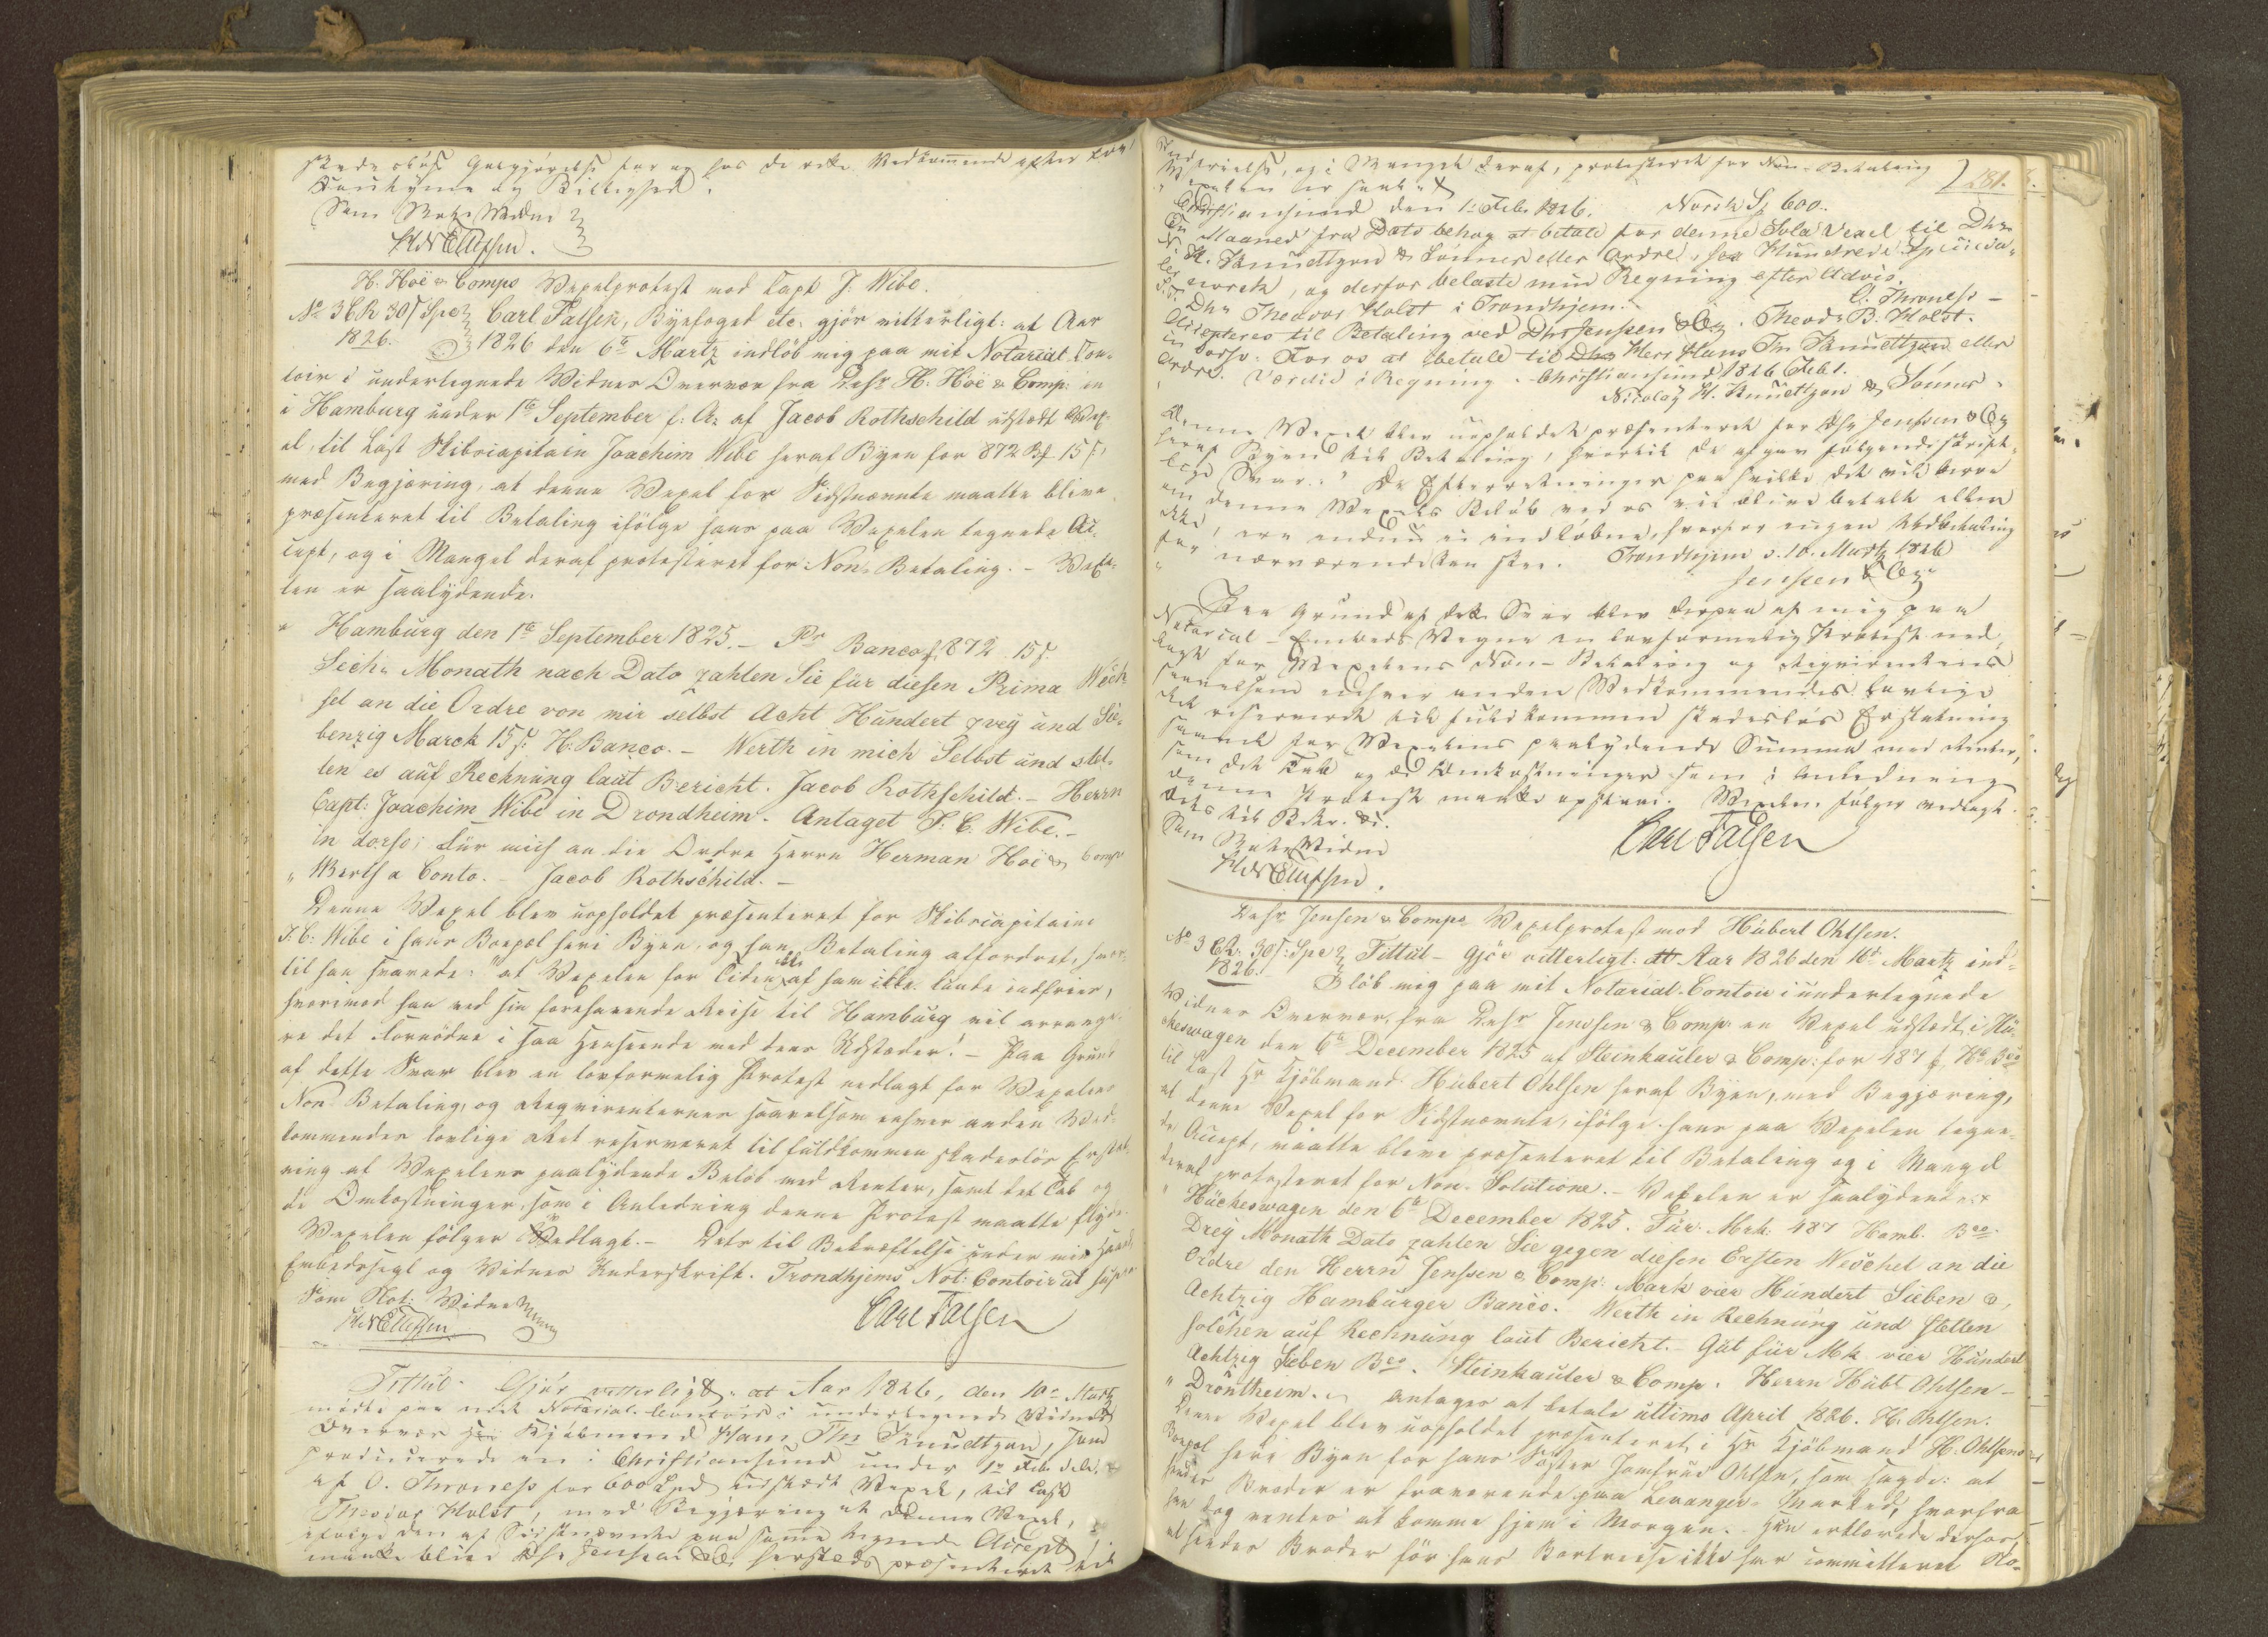 skadeslös Godtgjörelse for og hos de rette Vedkommende efter Lov,
Sædvane og Billighed.
Som Not: Vidne
H: Höë & Comps Vexelprotest mod Capt J. Wibe.
No 3 CR 30 ſ Spec Carl Falsen, Byefoged etc. gjör vitterligt: at Aar
1826. 1826 den 6te Martz indlöb mig paa mit Notarial-Con-
toir i undertegnede Vidners Overvær fra Dhrr H. Höë & Comp: en
i Hamburg under 1te September f: A: af Jacob Rothschild udstædt Vex-
el, til Last Skibscapitain Joachim Wibe heraf Byen for 872 Bf 15 ſ,
med Begjæring, at denne Vexel for Sidstnævnte maatte blive
præsenteret til Betaling ifölge hans paa Vexelen tegnede Ac-
cept, og i Mangel deraf protesteret for Non-Betaling. - Vexe-
len er saalydende.
" Hamburg den 1te September 1825. - Pr Banco 872 15 ſ.
Sechs Monath nach Dato zahlen Sie für diesen Prima Wech-
sel an die Ordre von mir selbst Acht Hundert zwey und Sie-
benzig Marck 15 ſ: H. Banco. - Werth in mich Selbst und stel-
len es auf Rechnung laut Bericht. Jacob Rothschild. - Herrn
Capt: Joachim Wibe in Drondheim. Antaget J. C. Wibe. -
in dorso: Für mich an die Ordre Herrn Herman Höë & Comp
" Werth a Conto. - Jacob Rothschild. -
Denne Vexel blev uopholdet præsenteret for Skibscapitaine
J: C: Wibe i hans Boepæl her i Byen, og han Betaling affordret, hvor-
til han svarede: "at Vexelen for Tiden af ham ikke kunde indfries,
hvorimod han ved sin forehavende Reise til Hamburg vil arrange-
re det Fornödne i saa Henseende med dens Udstæder! - Paa Grund
af dette Svar blev en lovformelig Protest nedlagt for Vexelens
Non Betaling, og Reqvirenternes saavelsom enhver anden Ved-
kommendes lovlige Ret reserveret til fuldkommen skadeslös Erstat-
ning af Vexelens paalydende Belöb med Renter, samt det Tab og
de Omkostninger, som i Anledning denne Protest maatte flyde.
Vexelen fölger vedlagt. - Dets til Bekræftelse under min Haand,
Embedssegl og Vidnes Underskrift. Trondhjems Not: Contoir ut supra
Som Not: Vidne Carl Falsen
Tittul. Gjör vitterligt: at Aar 1826, den 10de Martz
mödte paa mit Notarial-Contoir i undertegnede Vidnes
Overvær Hr Kjöbmand Hans Ths Knudtzon, som
producerede en i Christiansund under 1te Feb: d. A.
af O. Throness for 600 Spd udstædt Vexel, til Last
Theodor Holst, med Begjæring at denne Vexel,
ifölge den af Sidstnævnte paa samme tegnede Accept
maatte blive Dhr Jenssen & Co hersteds præsenteret til
281.
og i Mangel deraf, protesteret for Non-Betaling
Vexelen er saal:
Christiansund den 1te Feb. 1826. Norsk Sp 600.
En Maaned fra Dato behag at betale for denne Sola Vexel til Dhrr
N. H. Knudtzon & Sönner eller Ordre, Sex Hundrede Speciesda-
ler norsk, og derfor belaste min Regning efter Advis.
S. T. Dhr Theodor Holst i Trondhjem. O. Throness -
Accepteres til Betaling ved Dhrr Jenssen & Co. Theodr B. Holst.
in dorso: For os at betale til Herr Hans Ths Knudtzon eller
Ordre. Værdie i Regning. Christiansund 1826 Feb 1.
Nicolay H. Knudtzon & Sönner.
Denne Vexel blev uopholdet præsenteret for Dhr Jenssen & Co
heraf Byen til Betaling, hvortil de afgav fölgende skrift-
lige Svar: "De Efterretninger paa hvilke det vil beroe
om denne Vexels Belöb ved os vil blive betalt eller
ikke, ere endnu ei indlöbne, hvorfor ingen Udbetaling
for nærværende kan skee. Trondhjem d. 10. Martz 1826
Jenssen & Co
Paa Grund af dette Svar blev derpaa af mig paa
Notarial-Embeds Vegne en lovformelig Protest ned-
lagt for Vexelens Non-Betaling og Reqvirentens
saavelsom enhver anden Vedkommendes lovlige
Ret reserveret til fuldkommen skadeslös Erstatning
saavel for Vexelens paalydende Summa med Renter,
som det Tab og de Omkostninger som i Anledning
denne Protest maatte opstaae. Vexelen fölger vedlagt.
Dets til Bekr. &c.
Som Not: Vidne Carl Falsen
Dhrr Jenssen & Comps Vexelprotest mod Hubert Ohlsen.
No 3 CR: 30 ſ: Spec Tittul - gjör vitterligt: at Aar 1826 den 10de Martz ind-
1826. löb mig paa mit Notarial-Contoir i undertegnede
Vidnes Overvær, fra Dhrr Jenssen & Comp: en Vexel udstædt i Hü-
ckeswagen den 6te December 1825 af Steinkauler & Comp: for 487 Hb Bco
til Last Hr Kjöbmand Hubert Ohlsen heraf Byen, med Begjæring,
at denne Vexel for Sidstnævnte, ifölge hans paa Vexelen tegne-
de Accept, maatte blive præsenteret til Betaling og i Mangel
deraf protesteret for Non-Solutione. - Vexelen er saalydende:
" Hückeswagen den 6te December 1825. Für Mrk: 487 Hamb. Bco.
Drey Monath Dato zahlen Sie gegen diesen Ersten Wechel an die
Ordre den Herrn Jenssen & Comp: Mark vier Hundert Sieben &
Achtzig Hamburger Banco. Werth in Rechnung und stellen
solchen auf Rechnung laut Bericht. - Gut für Mk vier Hundert
Achtzig Sieben Bco. Steinkauler & Comp. Herrn Hubt Ohlsen -
" Dröntheim. Antages at betale ultimo April 1826. H. Ohlsen.
Denne Vexel blev uopholdet præsenteret i Hr Kjöbmand H. Ohlsens
Boepæl her i Byen for hans Söster Jomfrue Ohlsen, som sagde: at
hendes Broder er fraværende paa Levanger-Marked, hvorfra
han dog ventes at komme hjem i Morgen. - Hun erklærede derhos
at hendes Broder för hans Bortreise ikke har committeret No-